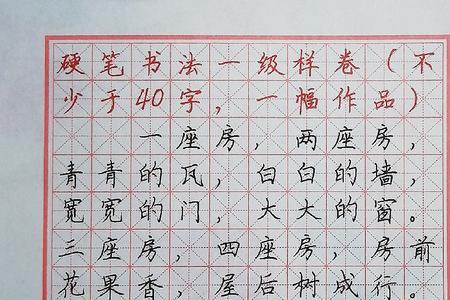 硬笔书法一级样卷（不
少于40字，一幅作品）
一座房，两座房，
青青的瓦，白白的墙，
宽宽的门，大大的窗。
三座房，四座房，房前
花果香，屋后树成行。